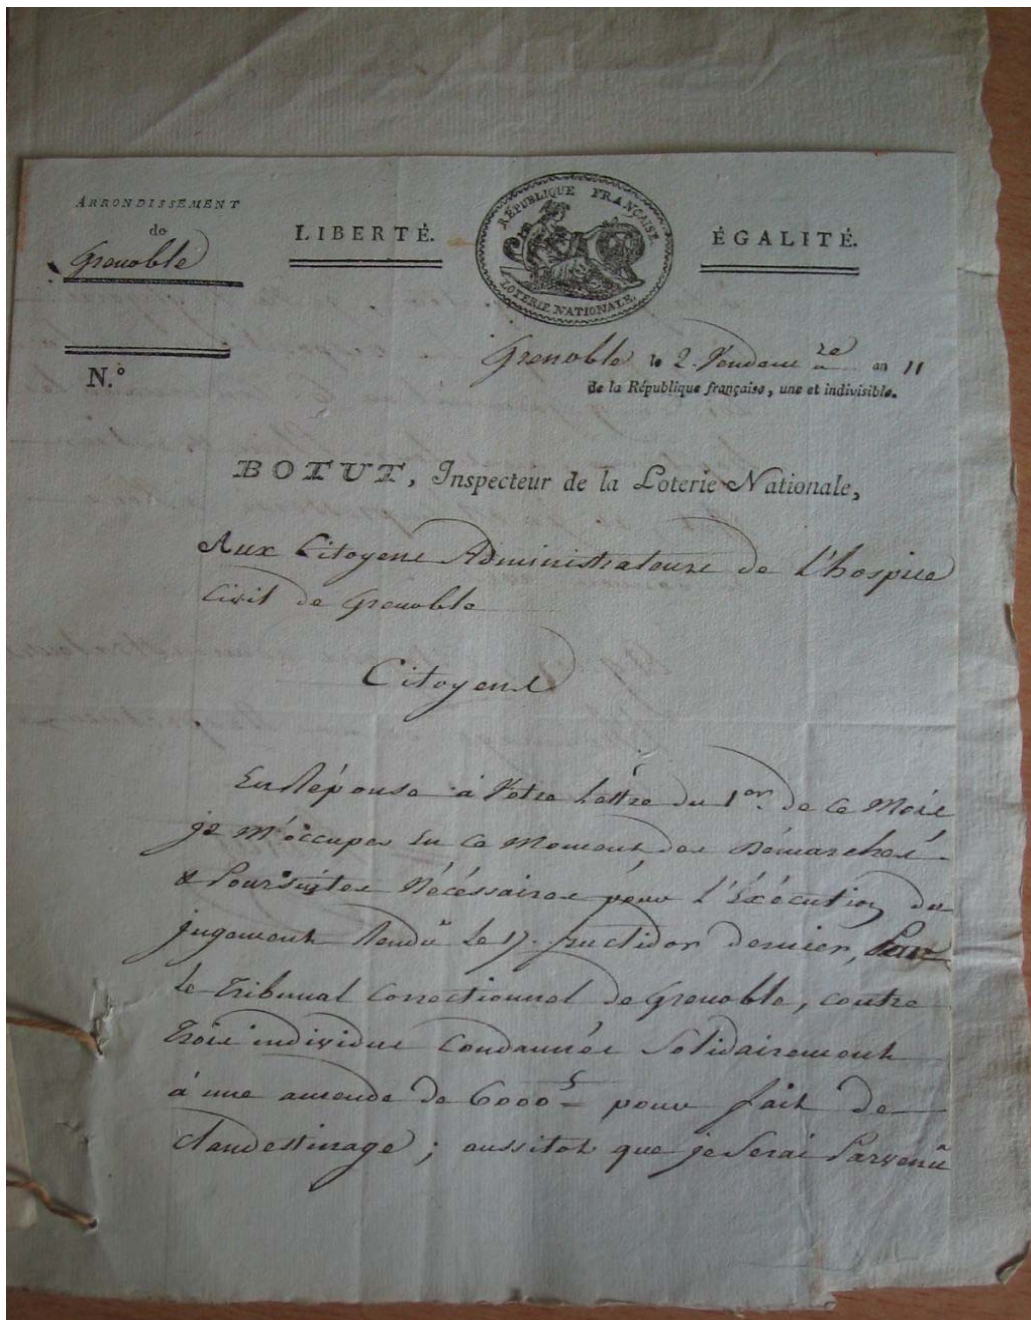 ARRONDISSEMENT
de
Grenoble
LIBERTÉ.
RÉPUBLIQUE FRANÇAISE.
LOTERIE NATIONALE.
ÉGALITÉ.
N.º
Grenoble le 2. Vendem re an 11
de la République française, une et indivisible.
BOTUT, Inspecteur de la Loterie Nationale,
Aux Citoyens Administrateurs de L'hospice
Civil de Grenoble
Citoyens
En Réponse à Votre Lettre du 1er. de Ce Mois
je M'occupes En Ce Moment des Démarches
& Poursuites Nécéssaires pour L'Éxécution du
jugement Rendû Le 17. fructidor dernier, Par
Le Tribunal Correctionnel de Grenoble, contre
Trois individus Condannés Solidairement
à une amende de 6000 pour fait de
Clandestinage ; aussitot que je Serai Parvenû